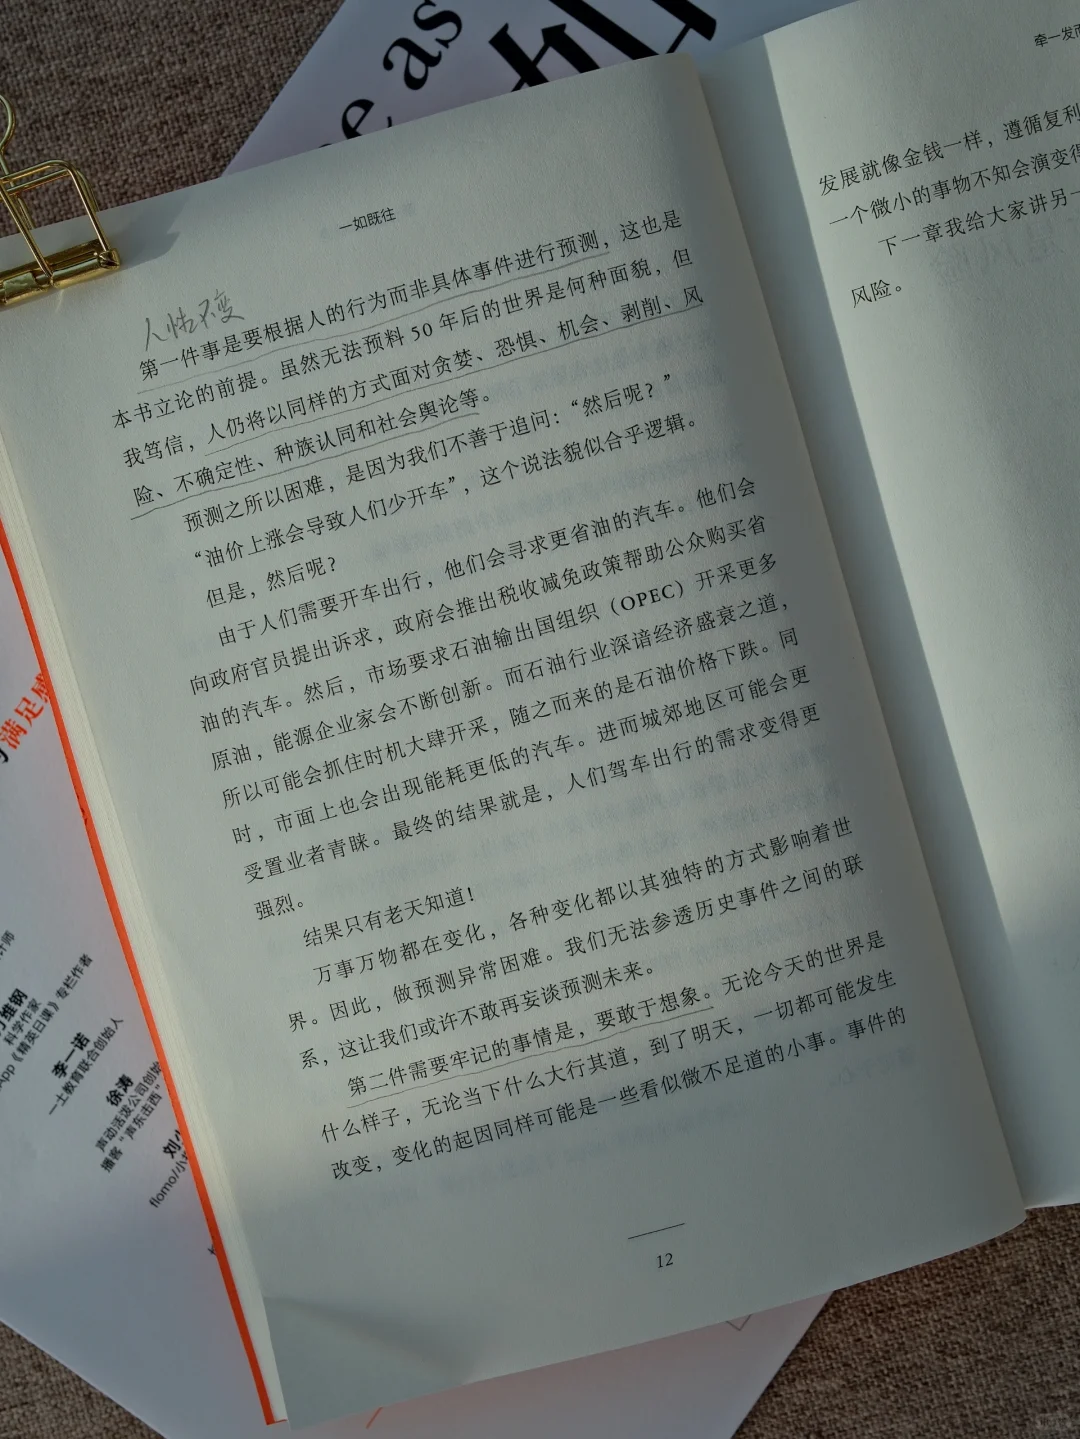 e as
一如既往
人性不变
第一件事是要根据人的行为而非具体事件进行预测，这也是
本书立论的前提。虽然无法预料 50 年后的世界是何种面貌，但
我笃信，人仍将以同样的方式面对贪婪、恐惧、机会、剥削、风
险、不确定性、种族认同和社会舆论等。
预测之所以困难，是因为我们不善于追问：“然后呢？”
“油价上涨会导致人们少开车”，这个说法貌似合乎逻辑。
但是，然后呢？
由于人们需要开车出行，他们会寻求更省油的汽车。他们会
向政府官员提出诉求，政府会推出税收减免政策帮助公众购买省
油的汽车。然后，市场要求石油输出国组织（OPEC）开采更多
原油，能源企业家会不断创新。而石油行业深谙经济盛衰之道，
所以可能会抓住时机大肆开采，随之而来的是石油价格下跌。同
时，市面上也会出现能耗更低的汽车。进而城郊地区可能会更
受置业者青睐。最终的结果就是，人们驾车出行的需求变得更
强烈。
结果只有老天知道！
万事万物都在变化，各种变化都以其独特的方式影响着世
界。因此，做预测异常困难。我们无法参透历史事件之间的联
系，这让我们或许不敢再妄谈预测未来。
第二件需要牢记的事情是，要敢于想象。无论今天的世界是
什么样子，无论当下什么大行其道，到了明天，一切都可能发生
改变，变化的起因同样可能是一些看似微不足道的小事。事件的
12
牵一发而
发展就像金钱一样，遵循复利
一个微小的事物不知会演变得
下一章我给大家讲另一
风险。
满足感
计师
万维钢
科学作家
App《精英日课》专栏作者
李一诺
一土教育联合创始人
徐涛
声动活泼公司创始
播客“声东击西”
刘少
flomo/小报